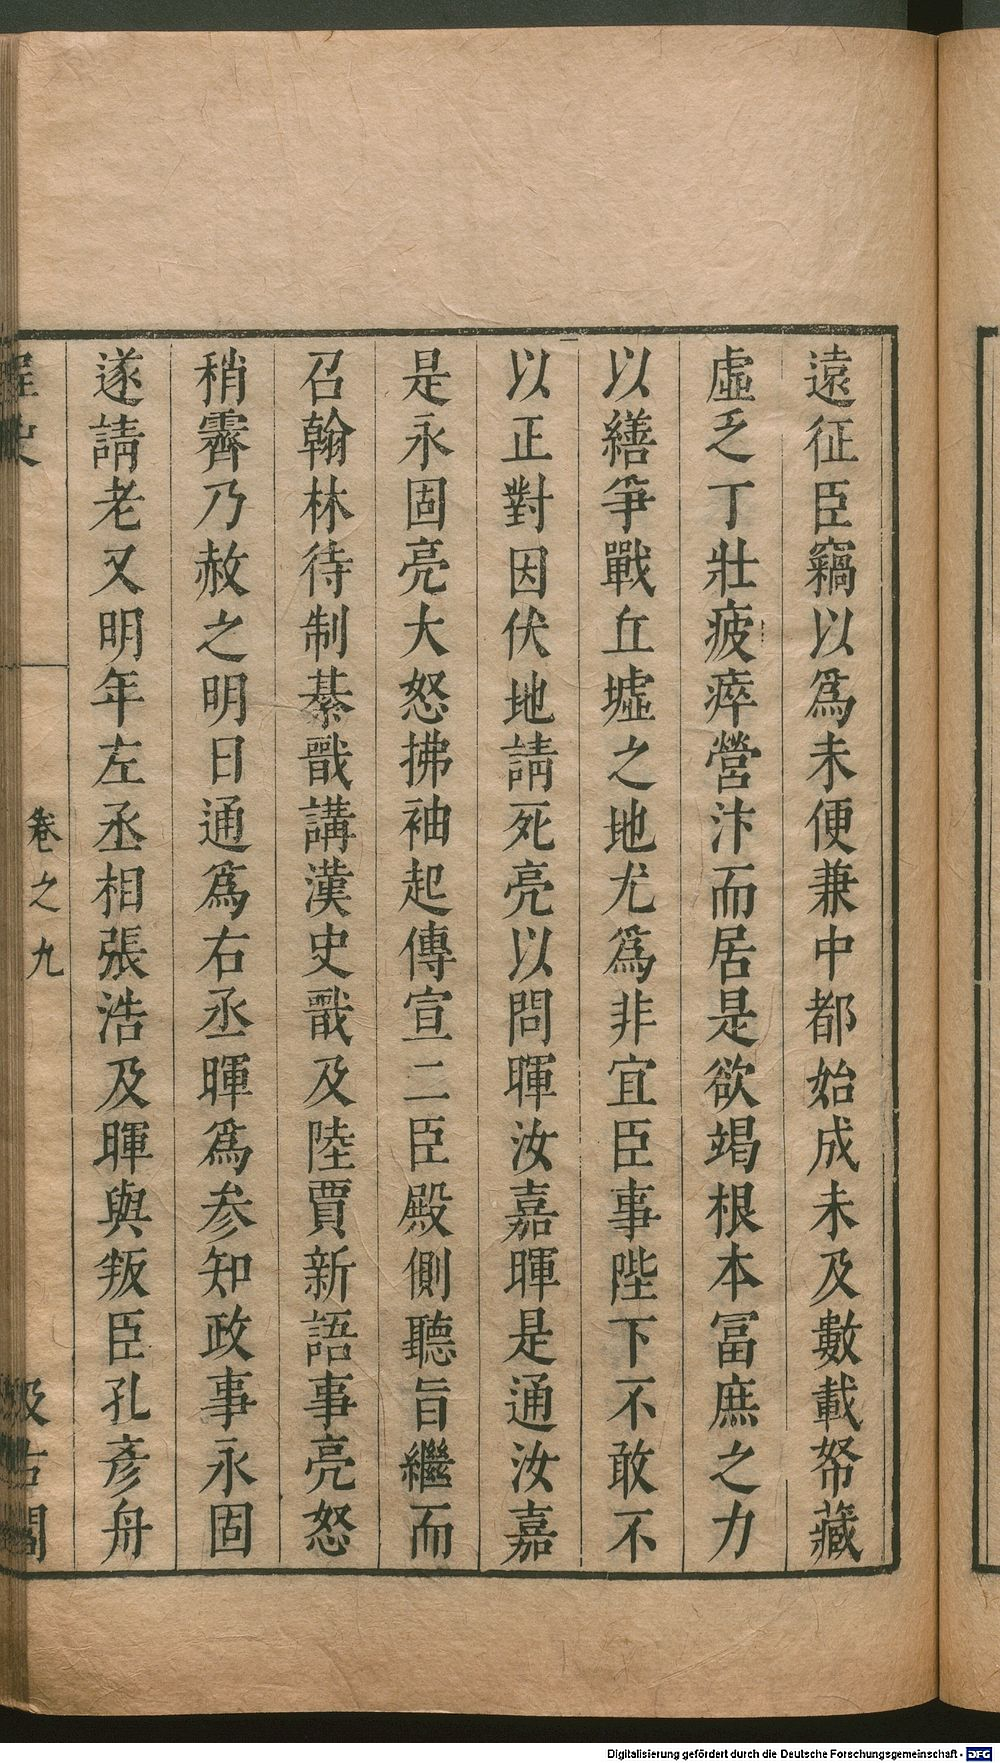 遠征臣竊以爲未便兼中都始成未及數載帑藏
虛乏丁壯疲瘁營汴而居是欲竭根本富庶之力
以繕爭戰丘墟之地尤爲非宜臣事陛下不敢不
以正對因伏地請死亮以問暉汝嘉暉是通汝嘉
是永固亮大怒拂袖起傳宣二臣殿側聽旨繼而
召翰林待制綦戩講漢史戩及陸賈新語事亮怒
稍霽乃赦之明日通爲右丞暉爲参知政事永固
遂請老又明年左丞相張浩及暉與叛臣孔彥舟
桯史
卷之九
汲古閣
Digitalisierung gefördert durch die Deutsche Forschungsgemeinschaft - DFG